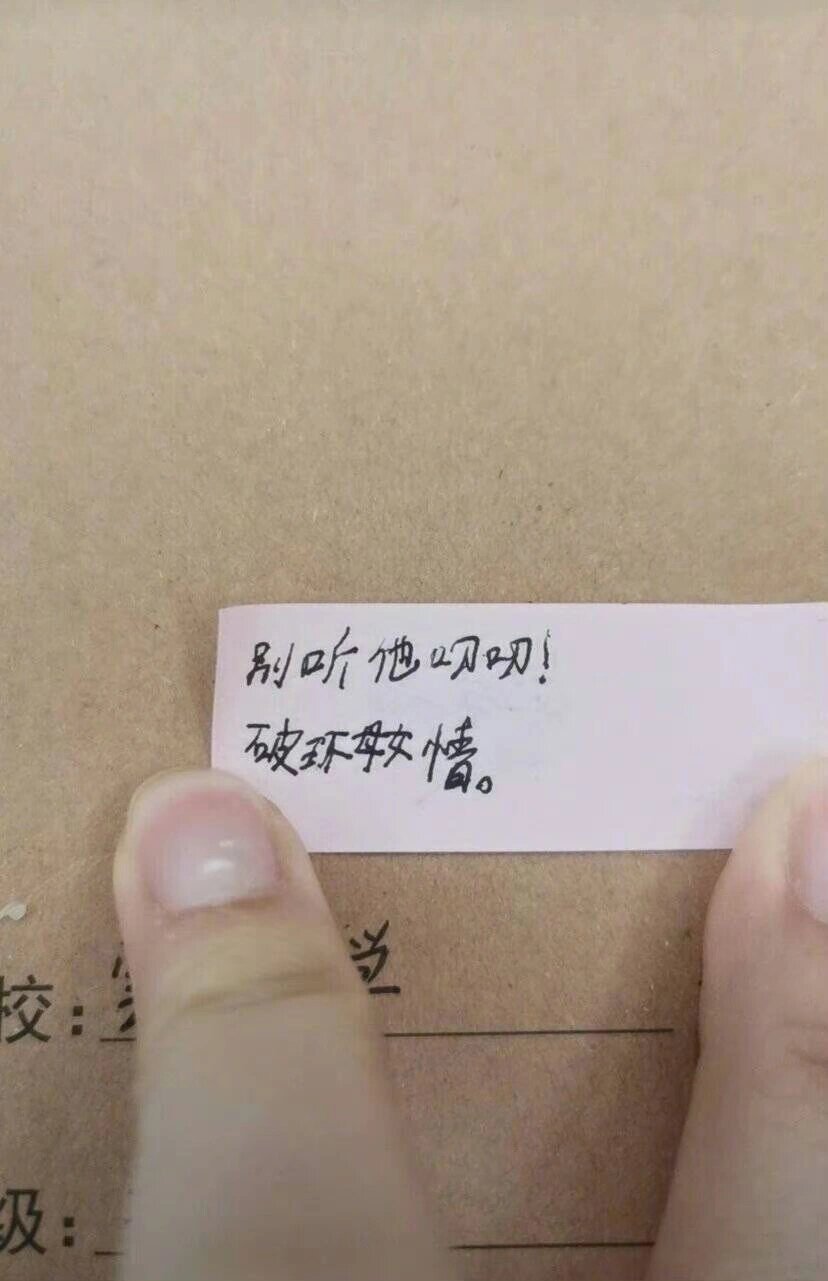 别听他叨叨！
破环母女情。
校：
级：